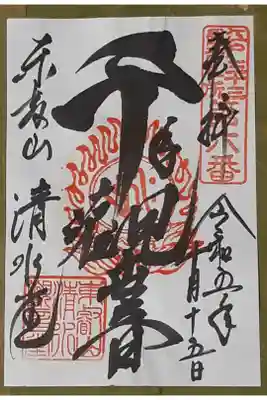 奉拝
令和五年
十月十五日
千手観世音
東叡山
清水堂